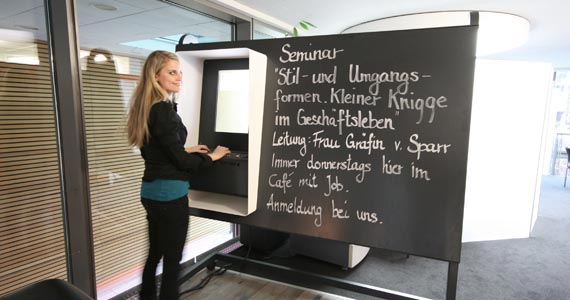 Seminar
"Stil- und Umgangs-
formen. Kleiner Knigge
im Geschäftsleben"
Leitung: Frau Gräfin v. Sparr
Immer donnerstags hier im
Café mit Job.
Anmeldung bei uns.